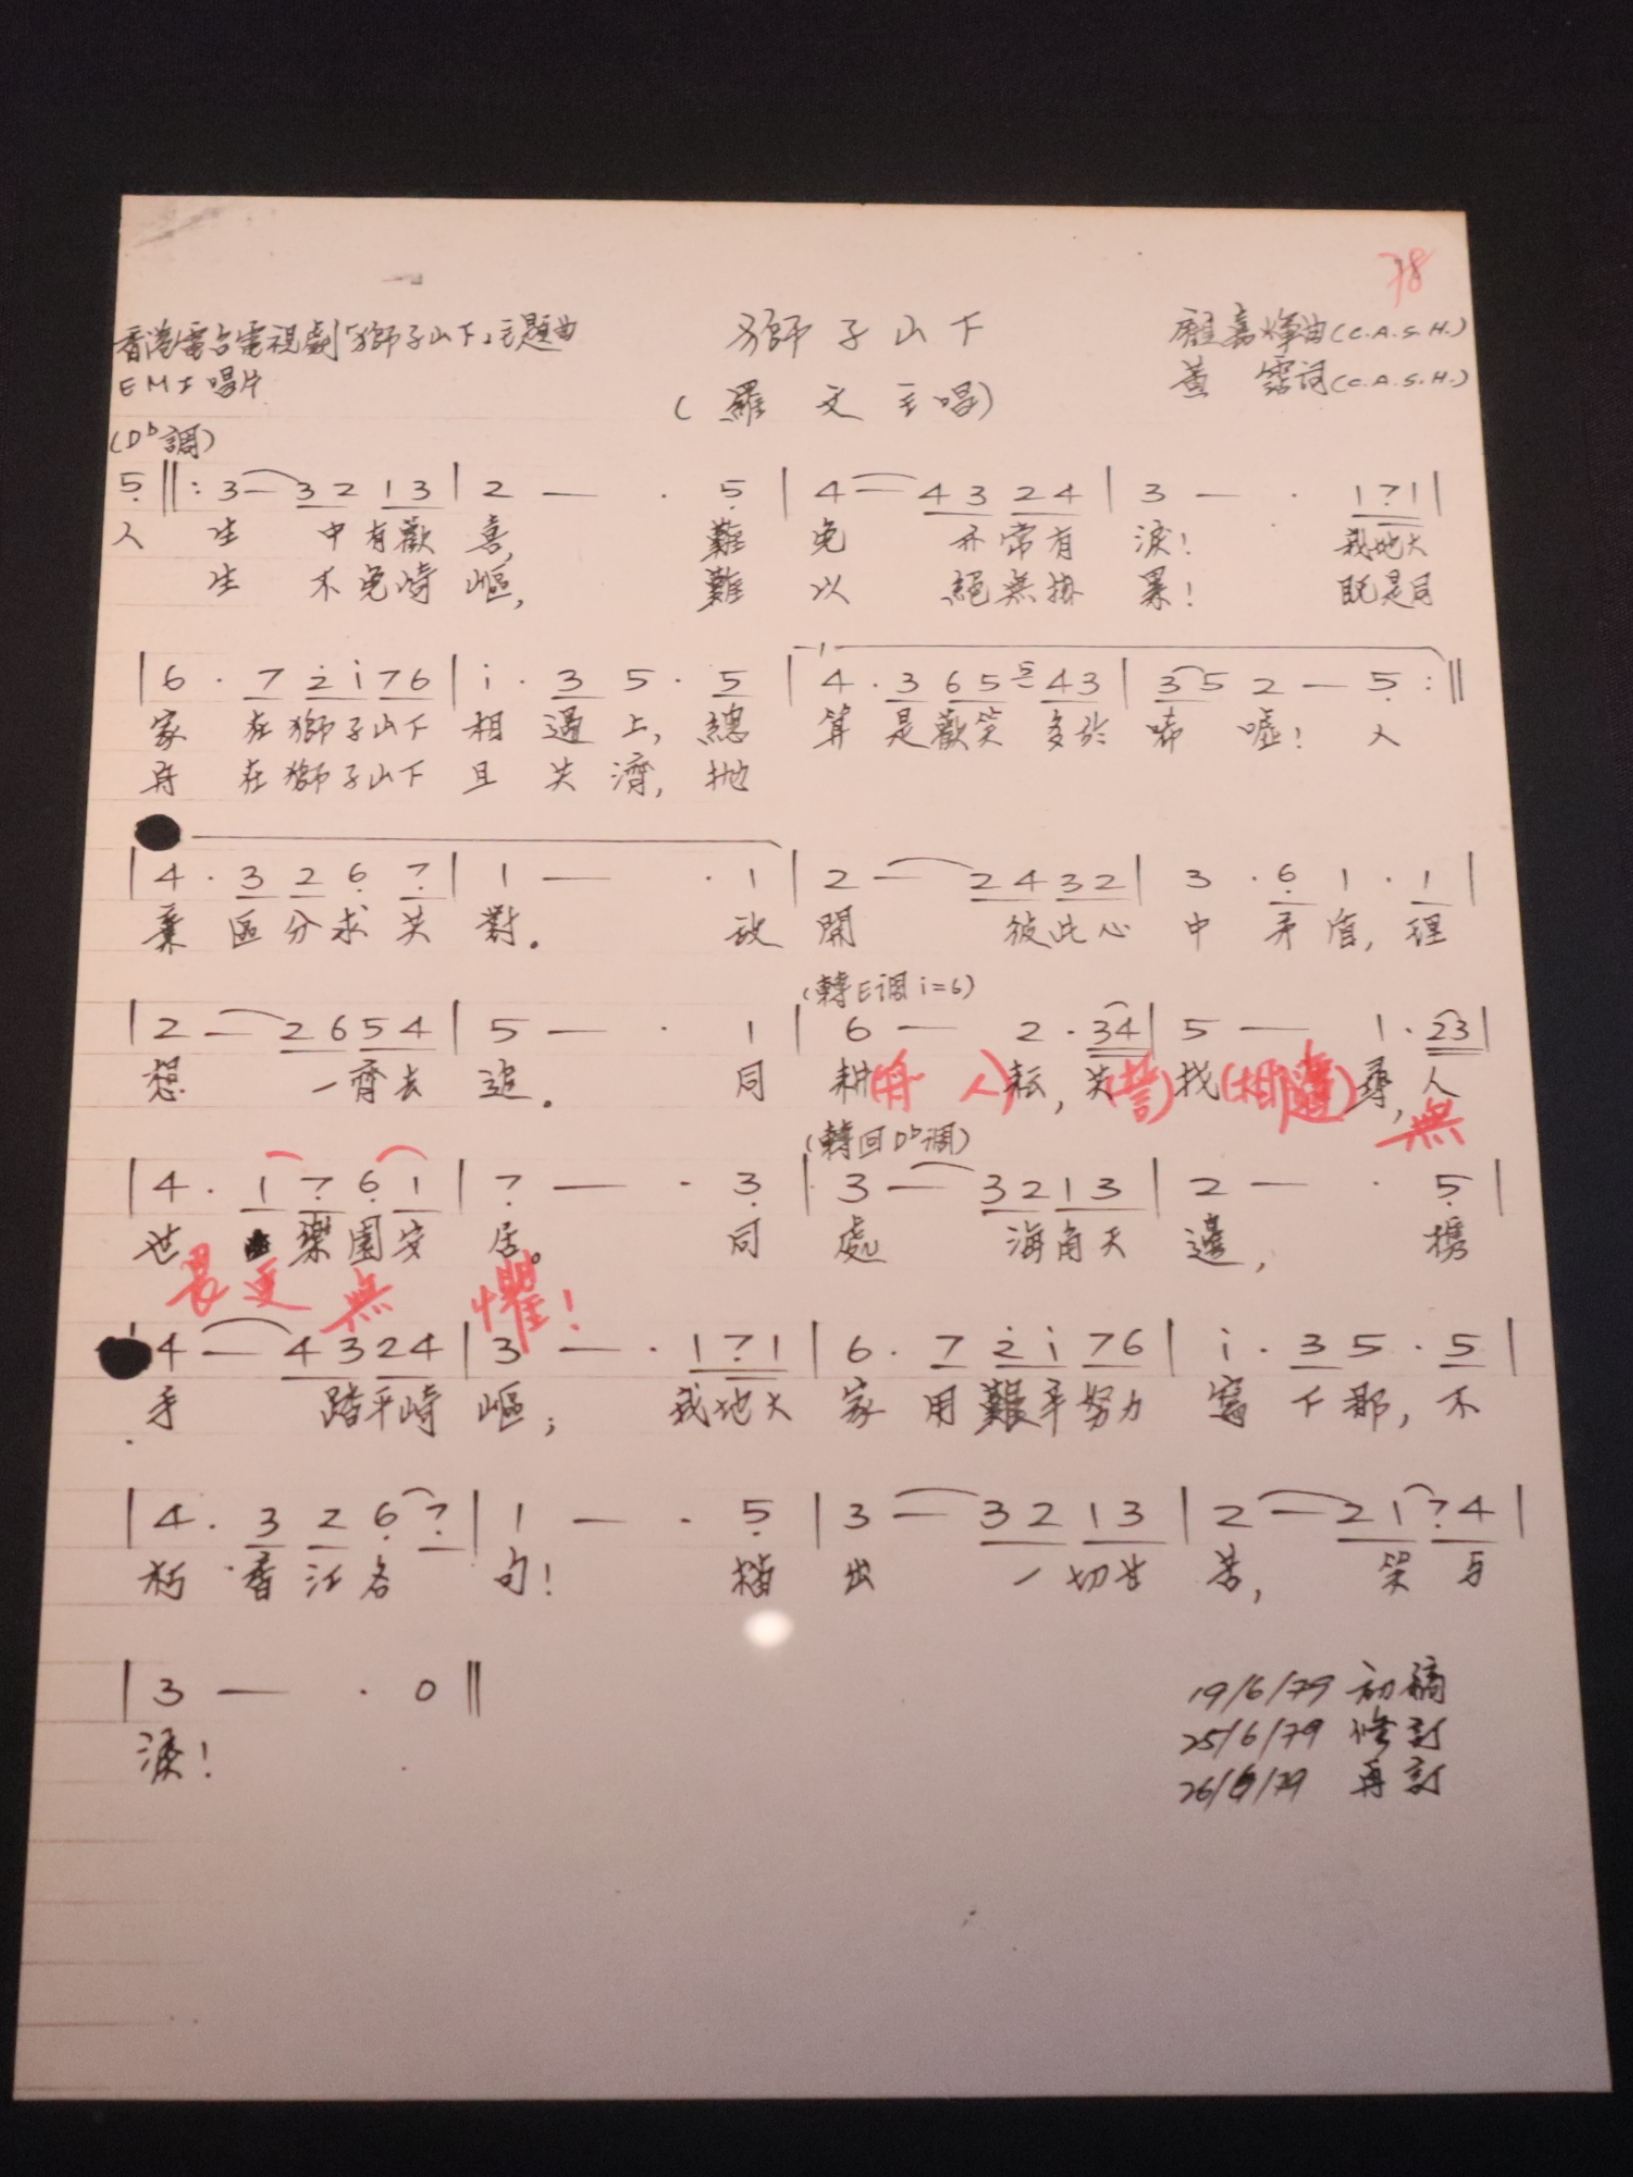 78
香港電台電視劇「獅子山下」主題曲 獅子山下 顧嘉煇曲(C.A.S.H.)
EMI唱片 (羅文主唱) 黃霑詞(C.A.S.H.)
(D♭調)
5̣ ‖: 3 — 3 2 1 3 | 2 — · 5̣ | 4 — 4 3 2 4 | 3 — · 1 7̣ 1 |
人 生 中有歡 喜, 難 免 亦常有 淚! 我地大
生 不免崎 嶇, 難 以 絕無掛 累! 既是同
| 6 · 7 2̇ 1̇ 7 6 | 1̇ · 3 5 · 5 | 1 4 · 3 6 5 5 4 3 | 3 5 2 — 5̣ :‖
家 在獅子山下 相遇上, 總 算是歡笑 多於 唏噓! 人
舟 在獅子山下 且共濟, 拋
| 4 · 3 2 6̣ 7̣ | 1 — · 1 | 2 — 2 4 3 2 | 3 · 6̣ 1 · 1 |
棄區分求共 對。 放 開 彼此心 中矛盾, 理
(轉E調 i=6)
| 2 — 2 6 5 4 | 5 — · 1 | 6 — 2 · 3 4 | 5 — 1 · 2 3 |
想 一齊去 追。 同 耕(舟 人)耘, 共(誓)找(相隨)尋, 人
無
(轉回D♭調)
| 4 · 1 7̣ 6̣ 1 | 7̣ — · 3̣ | 3 — 3 2 1 3 | 2 — · 5̣ |
世 樂園安 居。 同 處 海角天 邊, 攜
畏更無 懼!
| 4 — 4 3 2 4 | 3 — · 1 7̣ 1 | 6 · 7 2̇ 1̇ 7 6 | 1̇ · 3 5 · 5 |
手 踏平崎 嶇; 我地大 家用艱辛努力 寫下那, 不
| 4 · 3 2 6̣ 7̣ | 1 — · 5̣ | 3 — 3 2 1 3 | 2 — 2 1 7̣ 4 |
朽香江名 句! 描 出 一切甘 苦, 笑與
| 3 — · 0 ‖
淚!
19/6/79 初稿
25/6/79 修訂
26/6/79 再訂